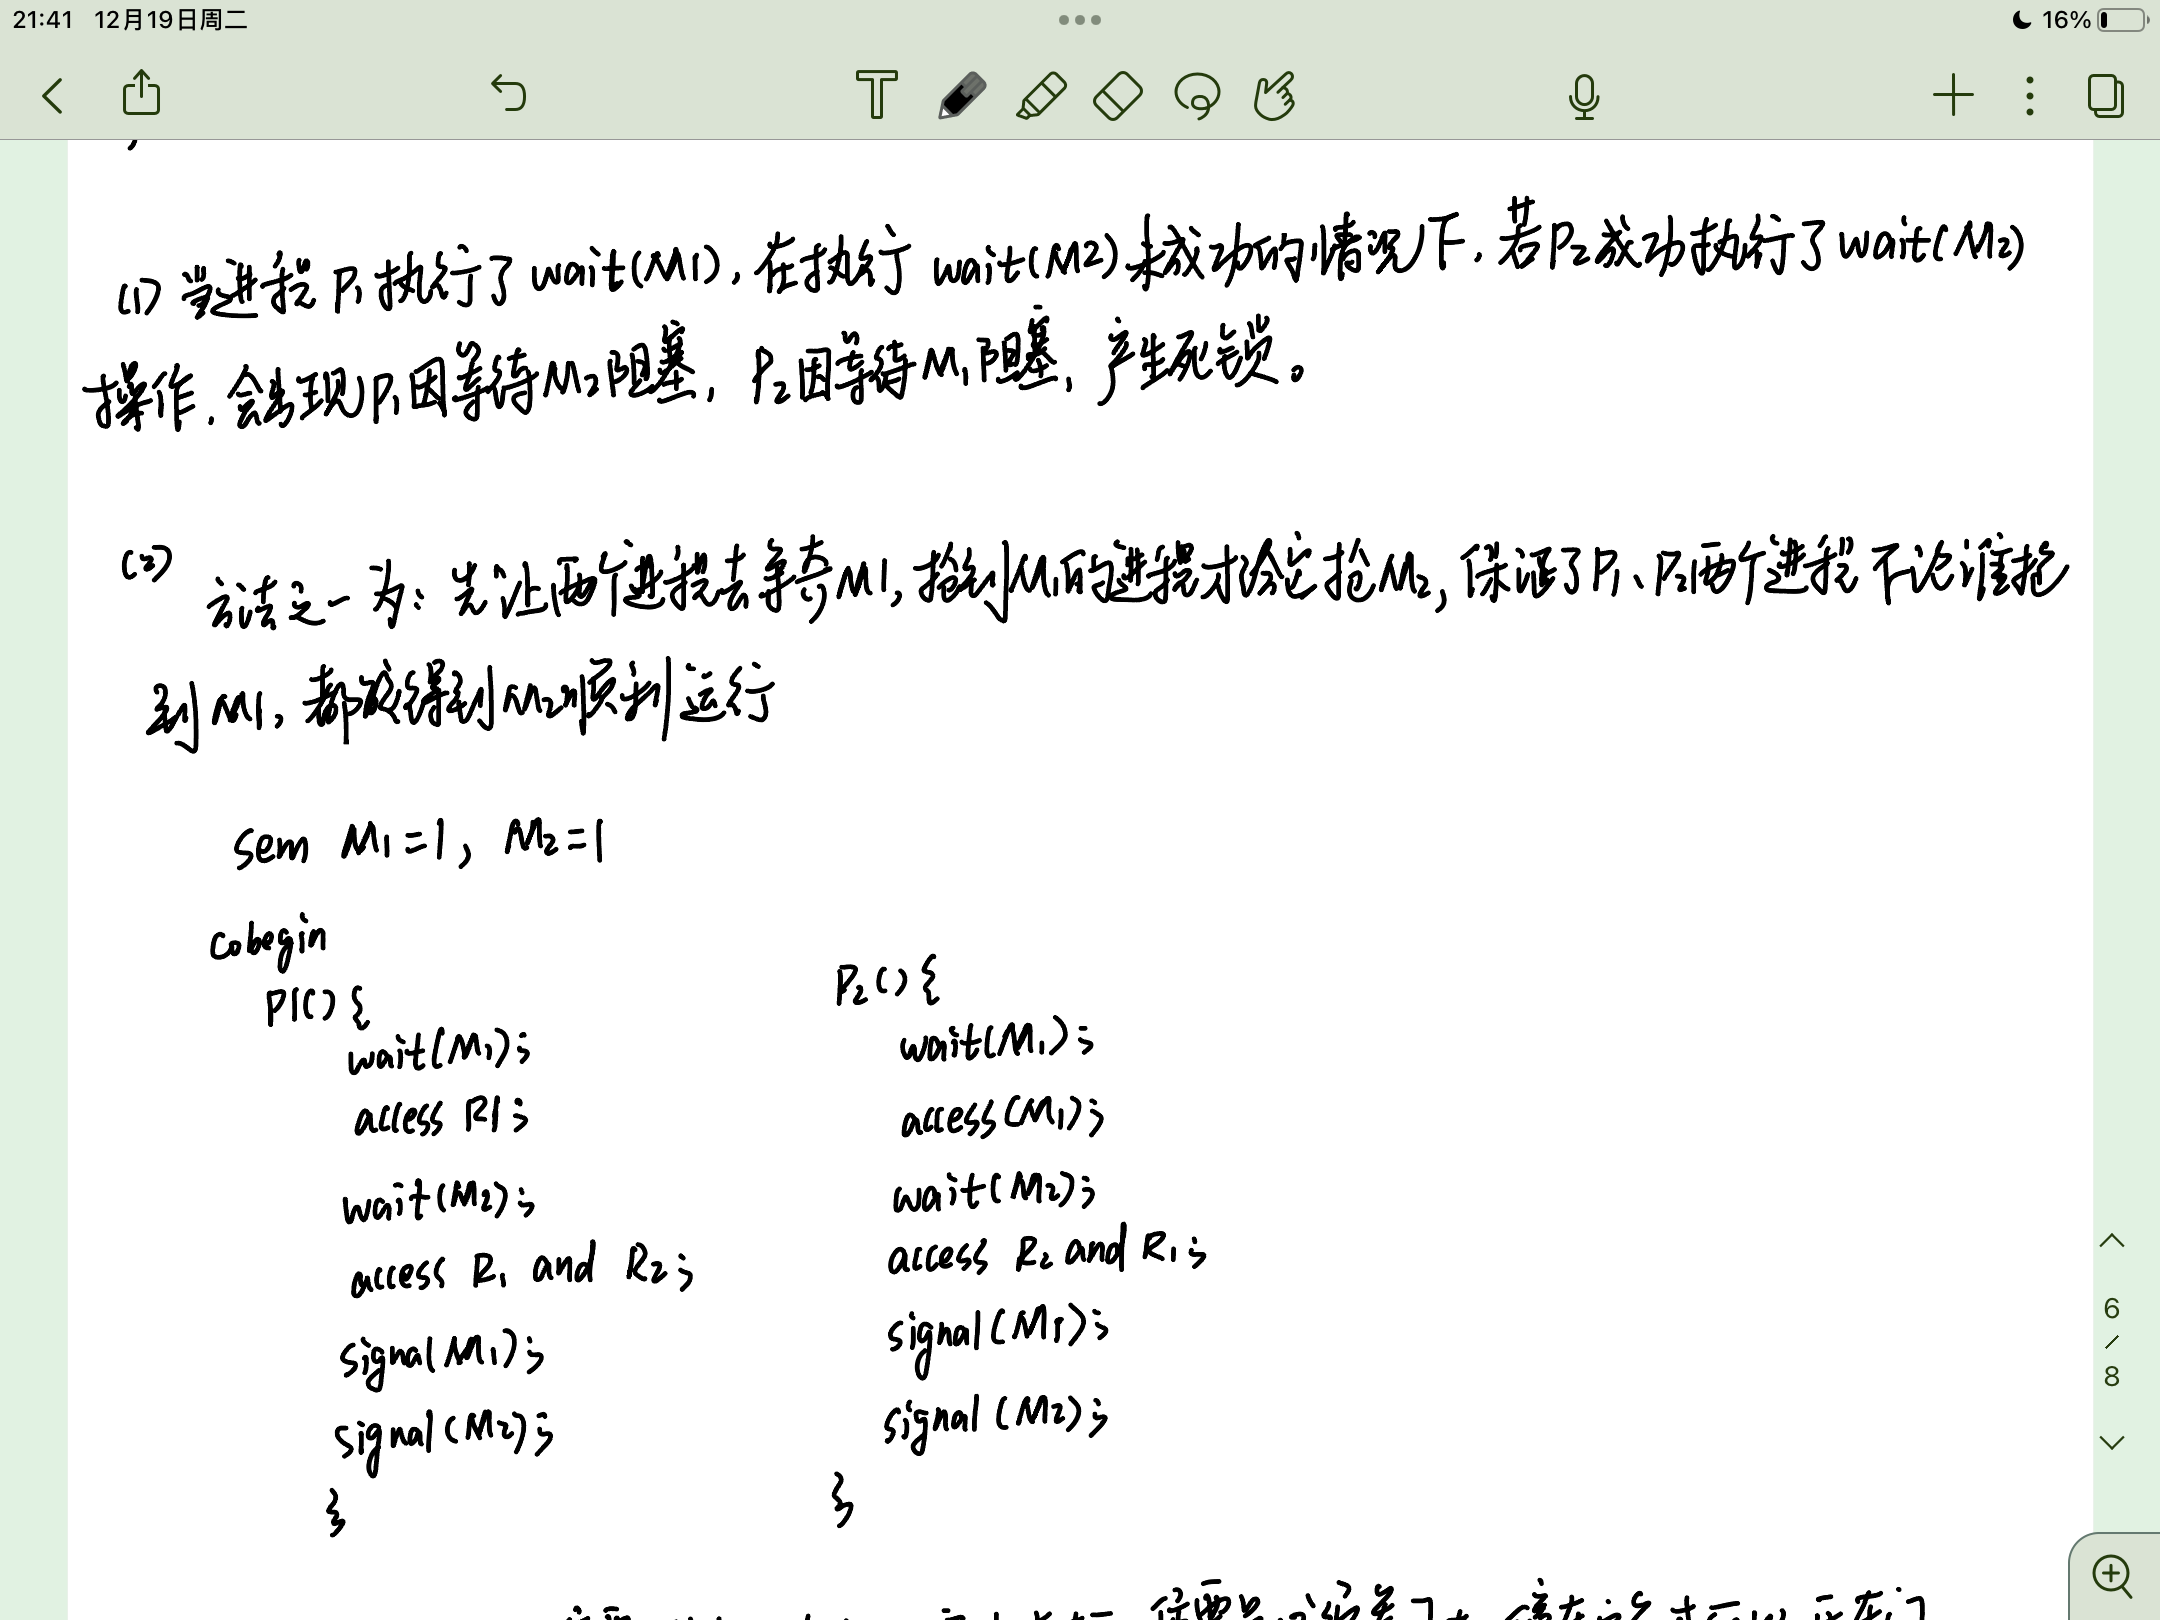 21:41 12月19日周二
16%
(1) 当进程P1执行了wait(M1), 在执行wait(M2)未成功的情况下, 若P2成功执行了wait(M2)
操作, 会出现P1因等待M2阻塞, P2因等待M1阻塞, 产生死锁。
(2)
方法之一为: 先让两个进程去争夺M1, 抢到M1的进程才给它抢M2, 保证了P1、P2两个进程不论谁抢
到M1, 都能得到M2顺利运行
sem M1=1, M2=1
cobegin
P1() {
wait(M1);
access R1;
wait(M2);
access R1 and R2;
signal(M1);
signal(M2);
}
P2() {
wait(M1);
access(M1);
wait(M2);
access R2 and R1;
signal(M1);
signal(M2);
}
6
/
8